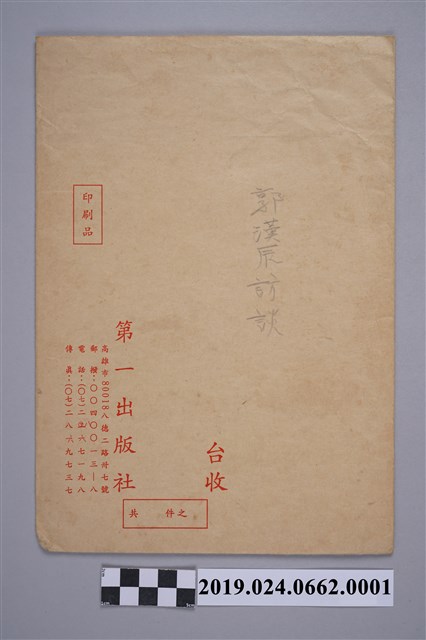 郭漢辰訪談
台收
印刷品
第一出版社
高雄市80018八德二路卅七號
郵撥:〇〇四〇〇一三—八
傳真:(〇七)二八六九七三七
共 件之
2019.024.0662.0001